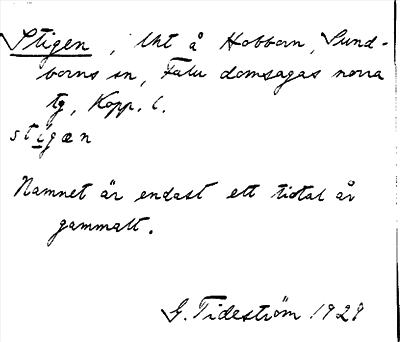 Stigen, lht å Hobborn, Sund-
borns sn, Falu domsagas norra
tg, Kopp. l.
stigæn
Namnet är endast ett tiotal år
gammalt.
G. Tideström 1928